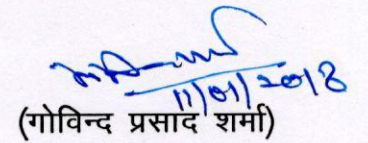 11/01/2018
(गोविन्द प्रसाद शर्मा)